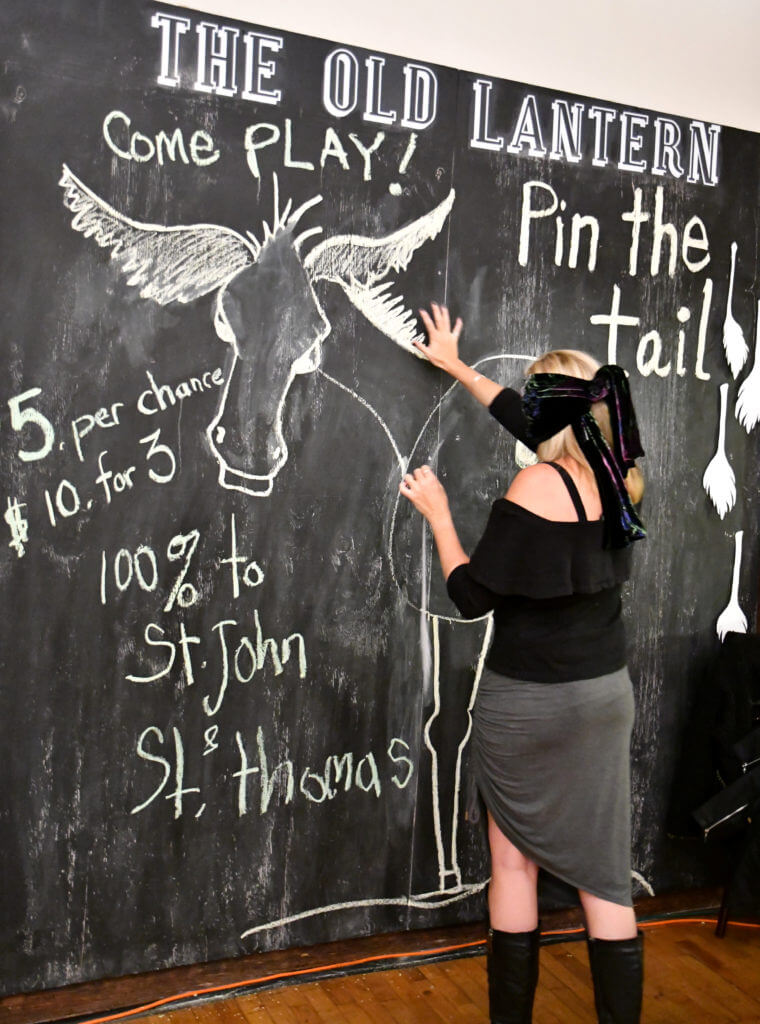 THE OLD LANTERN
Come PLAY!
Pin the
tail
5. per chance
$10. for 3
100% to
St. John
&
St. thomas